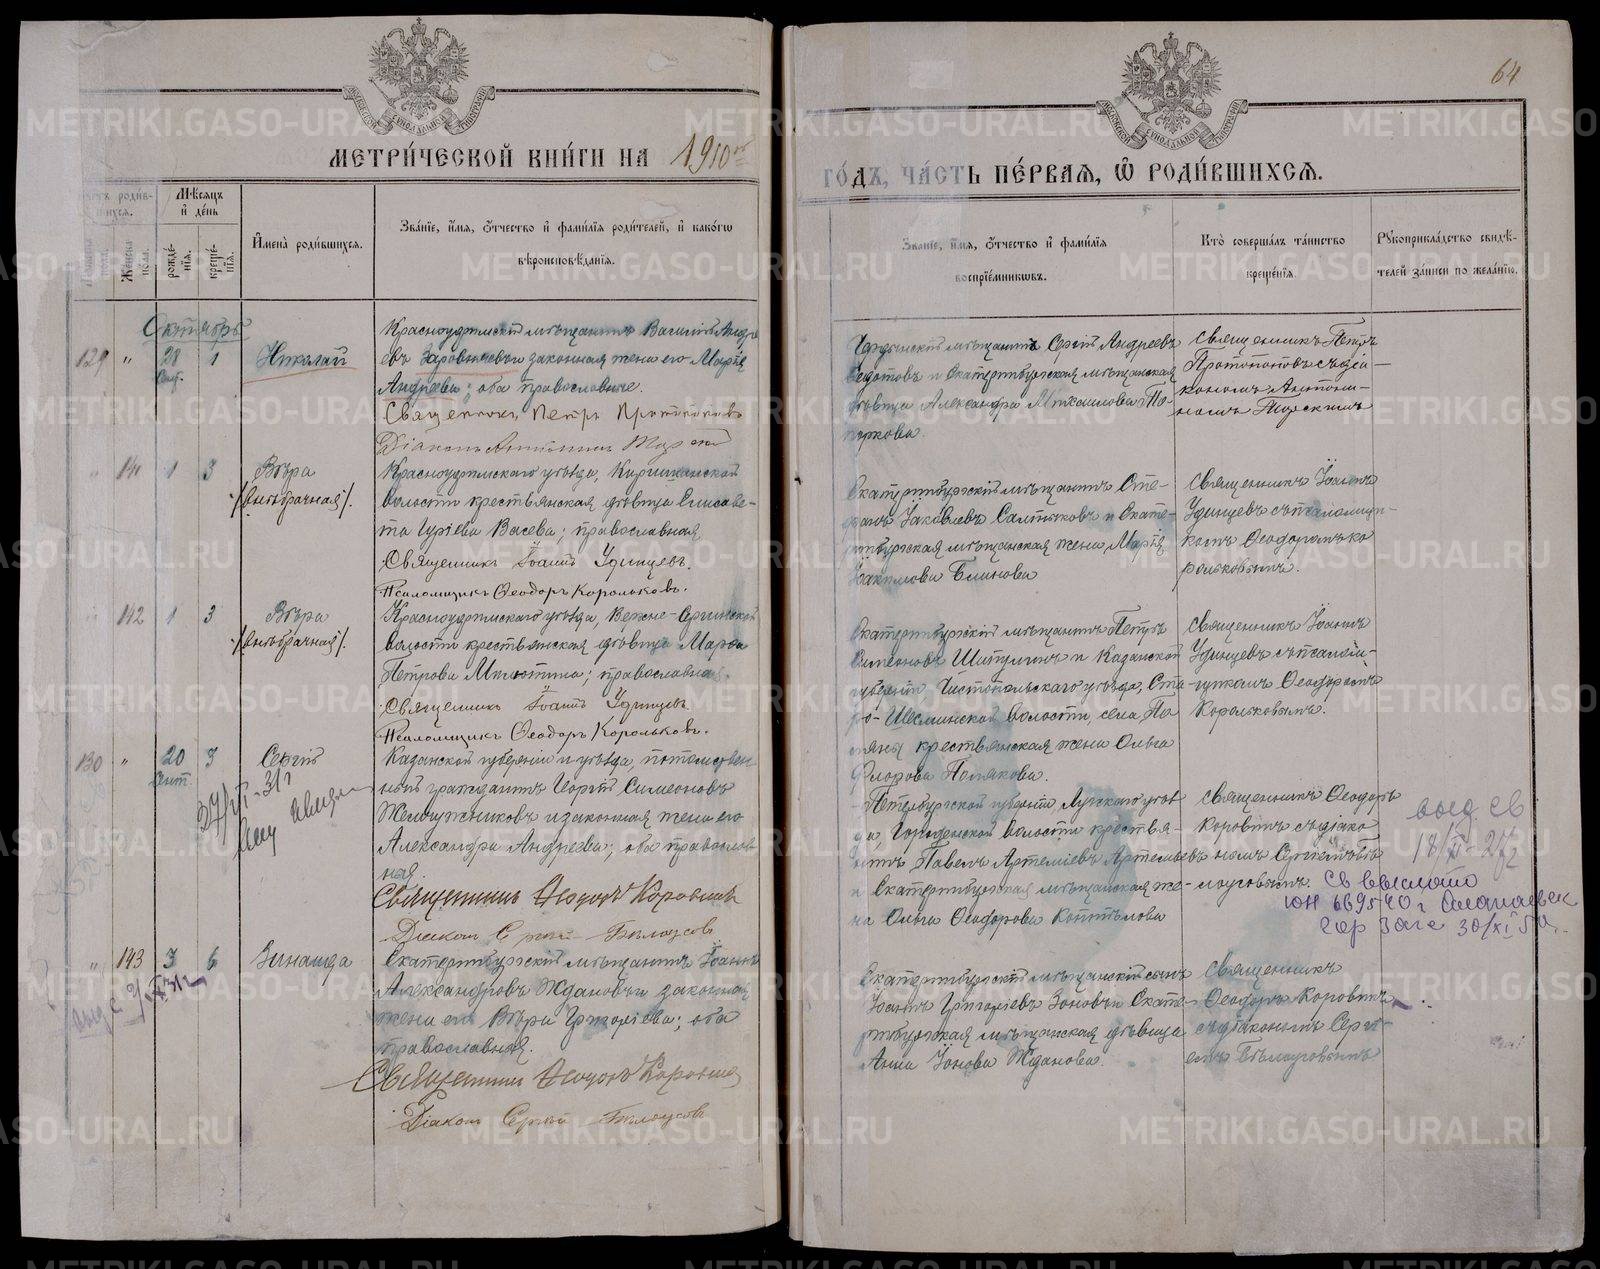 64
МЕТРИ́ЧЕСКОЙ КНИ́ГИ НА 1910
ГО́ДЪ, ЧА́СТЬ ПЕ́РВАЯ, Ѡ РОДИ́ВШИХСЯ.
Мѣсяцъ и де́нь
рожде́нія.
креще́нія.
Же́нска по́ла.
Имена̀ роди́вшихся.
Зва́нїе, и́мя, о́тчество и фами́лїя роди́телей, и како́гѡ
вѣроисповѣ́данїя.
Зва́нїе, и́мя, о́тчество и фами́лїя
воспрїе́мниковъ.
Кто̀ соверша́лъ та́инство
креще́нїя.
Рукоприкла́дство свидѣ́-
телей за́писи по жела́нїю.
Октябрь
129 " 28 1 Николай
Сент.
Красноуфимскій мѣщанинъ Василій Андре
евъ законная жена его Марія
Андреева; оба православные.
Священникъ Петръ Протопоповъ
Діаконъ Антонинъ
Андреевъ
Федотовъ и Екатеринбургская мѣщанская
дѣвица Александра Михаилова По-
Священникъ Петръ
Протопоповъ съ діа-
кономъ Антони-
номъ
141 1 3 Вѣра
/внѣбрачная/.
Красноуфимскаго уѣзда,
волости крестьянская дѣвица Елисаве-
та Васева; православная
Священникъ Іоаннъ Удинцевъ.
Псаломщикъ Ѳеодоръ Корольковъ.
Екатеринбургскій мѣщанинъ Сте-
фанъ Іаковлевъ Салтыковъ и Екате-
ринбургская мѣщанская жена Марія
Іакимова Блинова
Священникъ Іоаннъ
Удинцевъ съ псаломщи-
комъ Ѳеодоромъ Ко
рольковымъ.
142 1 3 Вѣра
/внѣбрачная/.
Красноуфимскаго уѣзда, Верхне-Сергинской
волости крестьянская дѣвица Марѳа
Петрова Милютина; православная.
Священникъ Іоаннъ Удинцевъ
Псаломщикъ Ѳеодоръ Корольковъ.
Екатеринбургскій мѣщанинъ Петръ
Симеоновъ Шипулинъ и Казанской
губерніи Чистопольскаго уѣзда, Ста
ро-Шешминской волости, села
крестьянская жена Ольга
Флорова Полякова.
Священникъ Іоаннъ
Удинцевъ съ псалом-
щикомъ Ѳеодоромъ
Корольковымъ.
130 " 20 3 Сергій
Сент.
Казанской губерніи и уѣзда, потомствен
ный гражданинъ Георгій Симеоновъ
Жемчужниковъ и законная жена его
Александра Андреева; оба православ
ная.
Священникъ Ѳеодоръ Коровинъ
Діаконъ Сергій Бѣлоусовъ
Петербургской губерніи Лужскаго уѣз
да, Городенской волости крестья-
нинъ Павелъ Артеміевъ Артемьевъ
и Екатеринбургская мѣщанская же-
на Ольга Ѳеодорова Коптѣлова
Священникъ Ѳеодоръ
Коровинъ съ діако
номъ Сергіемъ Бѣ
лоусовымъ.
выд. св
18/XI-27г
Св выслано
ЮН 669540 г Алапаевск
гор Загс 30/XI 50
143 3 6 Зинаида
Екатеринбургскій мѣщанинъ Іоаннъ
Александровъ Ждановъ и законная
жена его Вѣра Григоріева; оба
православная.
Священникъ Ѳеодоръ Коровинъ
Діаконъ Сергій Бѣлоусовъ
Екатеринбургскій мѣщанскій сынъ
Іоаннъ Григоріевъ Зоновъ и Екате-
ринбургская мѣщанская дѣвица
Анна Іонова Жданова.
Священникъ
Ѳеодоръ Коровинъ
съ діакономъ Серги-
емъ Бѣлоусовымъ
METRIKI.GASO-URAL.RU